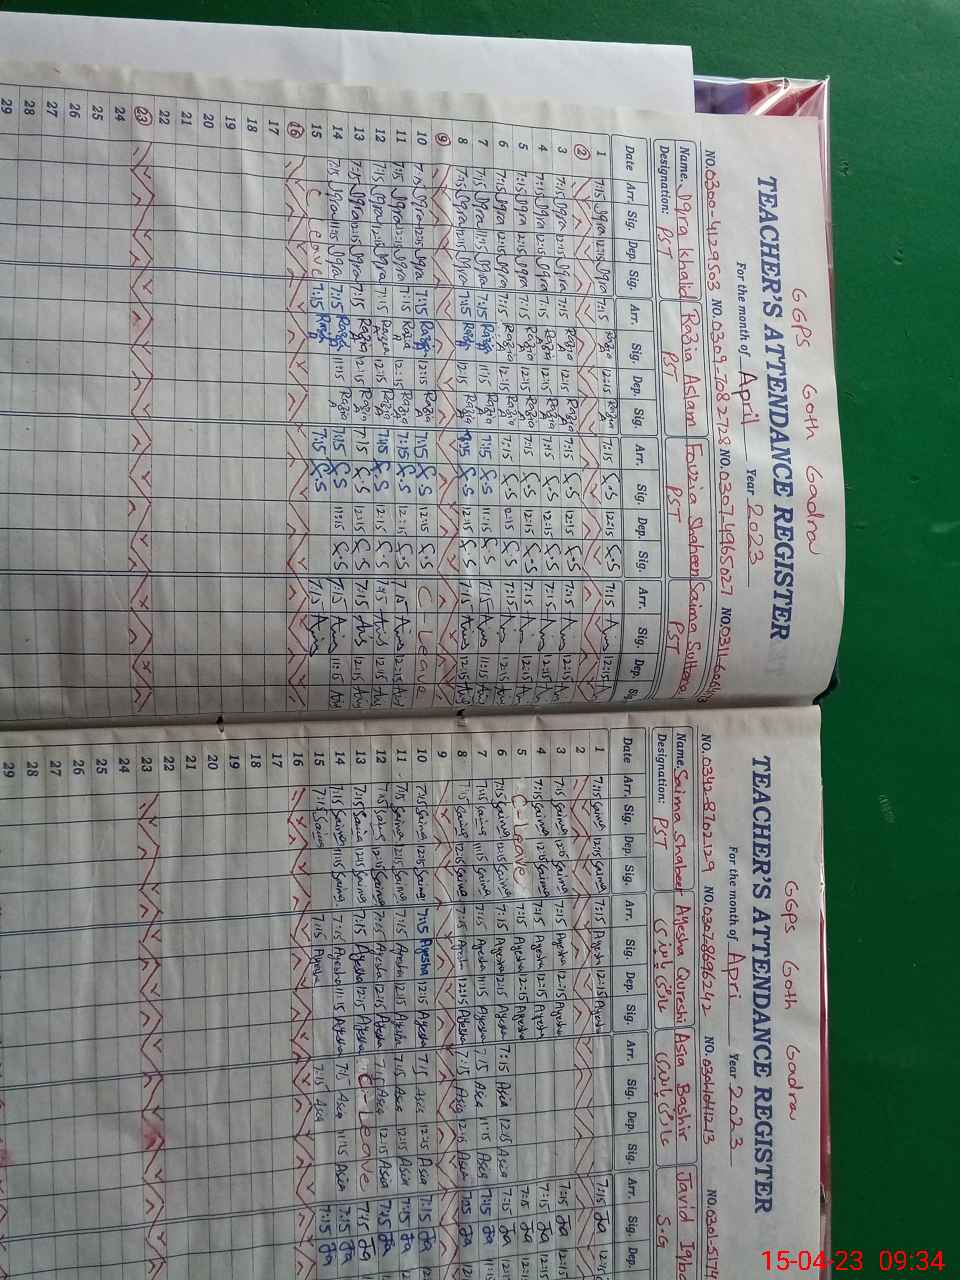 GGPS Goth Gadra
TEACHER'S ATTENDANCE REGISTER
For the month of April Year 2023
NO. 0300-4129503 NO. 0309-7082728 NO. 0307-4965027 NO. 0311-
Name. Iqra Khalid Razia Aslam Fouzia Shaheen Saima Sultana
Designation: PST PST PST PST
Date Arr. Sig. Dep. Sig. Arr. Sig. Dep. Sig. Arr. Sig. Dep. Sig. Arr. Sig. Dep. Sig
1 7:15 Iqra 12:15 Iqra 7:15 Razia 12:15 Razia 7:15 F.S 12:15 F.S 7:15 12:15
2
3 7:15 Iqra 12:15 Iqra 7:15 Razia 12:15 Razia 7:15 F.S 12:15 F.S 7:15 12:15
4 7:15 Iqra 12:15 Iqra 7:15 Razia 12:15 Razia 7:15 F.S 12:15 F.S 7:15 12:15
5 7:15 Iqra 12:15 Iqra 7:15 Razia 12:15 Razia 7:15 F.S 12:15 F.S 7:15 12:15
6 7:15 Iqra 12:15 Iqra 7:15 Razia 12:15 Razia 7:15 F.S 12:15 F.S 7:15 12:15
7 7:15 Iqra 11:15 Iqra 7:15 Razia 11:15 Razia 7:15 F.S 11:15 F.S 7:15 11:15
8 7:15 Iqra 12:15 Iqra 7:15 Razia 12:15 Razia 7:15 F.S 12:15 F.S 7:15 12:15
9
10 7:15 Iqra 12:15 Iqra 7:15 Razia 12:15 Razia 7:15 F.S 12:15 F.S C - Leave
11 7:15 Iqra 12:15 Iqra 7:15 Razia 12:15 Razia 7:15 F.S 12:15 F.S 7:15 12:15
12 7:15 Iqra 12:15 Iqra 7:15 Razia 12:15 Razia 7:15 F.S 12:15 F.S 7:15 12:15
13 7:15 Iqra 12:15 Iqra 7:15 Razia 12:15 Razia 7:15 F.S 12:15 F.S 7:15 12:15
14 7:15 Iqra 11:15 Iqra 7:15 Razia 11:15 Razia 7:15 F.S 11:15 F.S 7:15 11:15
15 C Leave 7:15 Razia 7:15 F.S 7:15
16
17
18
19
20
21
22
23
24
25
26
27
28
29
GGPS Goth Gadra
TEACHER'S ATTENDANCE REGISTER
For the month of Apri Year 2023
NO. 0342-8702129 NO. 0307-8696242 NO. 03041041213 NO. 0301-5174
Name. Saima Shabeer Ayesha Qureshi Asia Bashir Javid Iqba
Designation: PST S.G
Date Arr. Sig. Dep. Sig. Arr. Sig. Dep. Sig. Arr. Sig. Dep. Sig. Arr. Sig. Dep.
1 7:15 Saima 12:15 Saima 7:15 Ayesha 12:15 Ayesha 7:15 Ja 12:15
2
3 7:15 Saima 12:15 Saima 7:15 Ayesha 12:15 Ayesha 7:15 Ja 12:15
4 7:15 Saima 12:15 Saima 7:15 Ayesha 12:15 Ayesha 7:15 Ja 12:15
5 C - Leave 7:15 Ayesha 12:15 Ayesha 7:15 Ja 12:15
6 7:15 Saima 12:15 Saima 7:15 Ayesha 12:15 Ayesha 7:15 Asia 12:15 Asia 7:15 Ja 12:15
7 7:15 Saima 11:15 Saima 7:15 Ayesha 11:15 Ayesha 7:15 Asia 11:15 Asia 7:15 Ja
8 7:15 Saima 12:15 Saima 7:15 Ayesha 12:15 Ayesha 7:15 Asia 12:15 Asia 7:15 Ja
9
10 7:15 Saima 12:15 Saima 7:15 Ayesha 12:15 Ayesha 7:15 Asia 12:15 Asia 7:15 Ja
11 7:15 Saima 12:15 Saima 7:15 Ayesha 12:15 Ayesha 7:15 Asia 12:15 Asia 7:15 Ja
12 7:15 Saima 12:15 Saima 7:15 Ayesha 12:15 Ayesha 7:15 Asia 12:15 Asia 7:15 Ja
13 7:15 Saima 12:15 Saima 7:15 Ayesha 12:15 Ayesha C - Leave 7:15 Ja
14 7:15 Saima 11:15 Saima 7:15 Ayesha 11:15 Ayesha 7:15 Asia 11:15 Asia 7:15 Ja
15 7:15 Saima 7:15 Ayesha 7:15 Asia 7:15 Ja
16
17
18
19
20
21
22
23
24
25
26
27
28
29
15-04-23 09:34